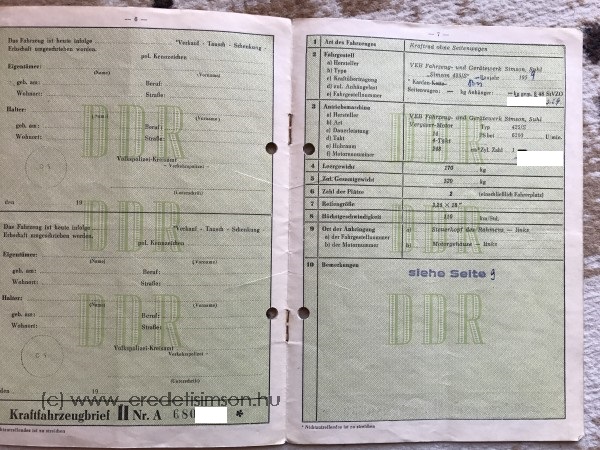 — 6 —
Das Fahrzeug ist heute infolge *Verkauf - Tausch - Schenkung -
Erbschaft umgeschrieben worden.
pol. Kennzeichen
Eigentümer:
(Name) (Vorname)
geb. am: Beruf:
Wohnort: Straße:
Halter:
(Name) (Vorname)
geb. am: Beruf:
Wohnort: Straße:
DDR
Volkspolizei-Kreisamt
-Verkehrspolizei-
(Unterschrift)
den 19
DDR
Das Fahrzeug ist heute infolge *Verkauf - Tausch - Schenkung -
Erbschaft umgeschrieben worden.
pol. Kennzeichen
Eigentümer:
(Name) (Vorname)
geb. am: Beruf:
Wohnort: Straße:
Halter:
(Name) (Vorname)
geb. am: Beruf:
Wohnort: Straße:
DDR
Volkspolizei-Kreisamt
-Verkehrspolizei-
(Unterschrift)
den 19
(c) www.eredetisimson.hu
Kraftfahrzeugbrief II Nr. A 680 *
— 7 —
1 Art des Fahrzeuges Kraftrad ohne Seitenwagen
2 Fahrgestell
a) Hersteller VEB Fahrzeug- und Gerätewerk Simson, Suhl
b) Type "Simson 425/S" — Baujahr 195
c) Kraftübertragung
d) zul. Anhängelast Seitenwagen: — kg Anhänger: — kg gem. § 48 StVZO
e) Fahrgestellnummer
3 Antriebsmaschine
a) Hersteller VEB Fahrzeug- und Gerätewerk Simson, Suhl
b) Art Vergaser-Motor Typ 425/S
c) Dauerleistung PS bei U/min.
d) Takt 4-Takt
e) Hubraum cm³ Zyl. Zahl 1
f) Motorennummer
4 Leergewicht
5 Zul. Gesamtgewicht 320 kg
6 Zahl der Plätze 2 (einschließlich Fahrerplatz)
7 Reifengröße
8 Höchstgeschwindigkeit km/Std.
9 Ort der Anbringung
a) der Fahrgestellnummer a) Steuerkopf des Rahmens — links
b) der Motornummer b) Motorgehäuse — links
10 Bemerkungen
siehe Seite 9
DDR
DDR
DDR
* Nichtzutreffendes ist zu streichen